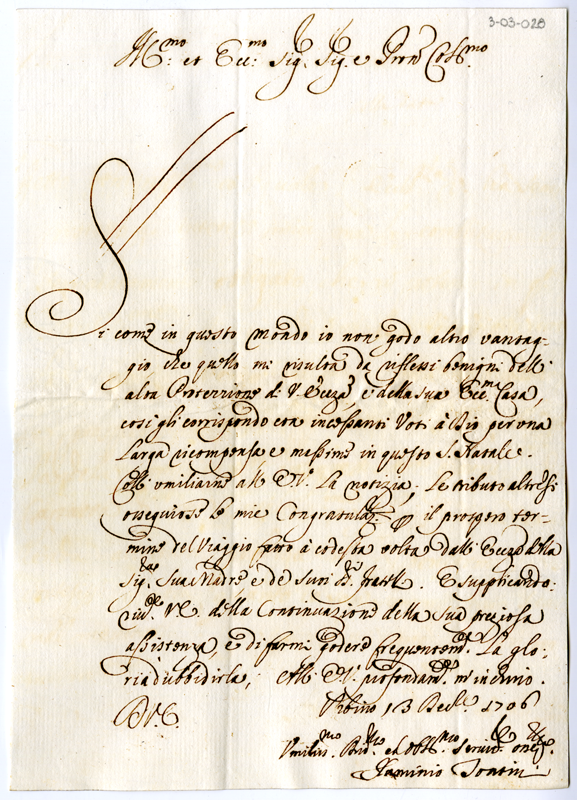 3-03-028
Ill.mo et Ecc.mo Sig. Sig. e Pron Col.mo
Si come in questo mondo io non godo altro vantag=
gio che quello mi risulta da riflessi benigni dell'
alta Protezzione di V. Ecza, e della sua Ecc.ma Casa,
cosi gli corrispondo con incessanti Voti à Dio per una
larga ricompensa e massime in questo S. Natale.
umiliarne all' la notizia; le tributo altresi
osseguiose le mie Congratulaz. il prospero ter=
mine del Viaggio fatto à codesta volta dall' Ecza della
Sig.ra Sua Madre e de suoi SS.ri Fratelli. E supplicando
V.E. della Continuazione della sua preziosa
assistenza, e di farmi godere frequentem.te la glo=
ria d'ubbidirla; all' E.V. profondam.te m'inchino.
D.V.E. Urbino 13 Decbe 1706
Umiliss.mo Div.mo et Obb.mo Servid.
Flaminio